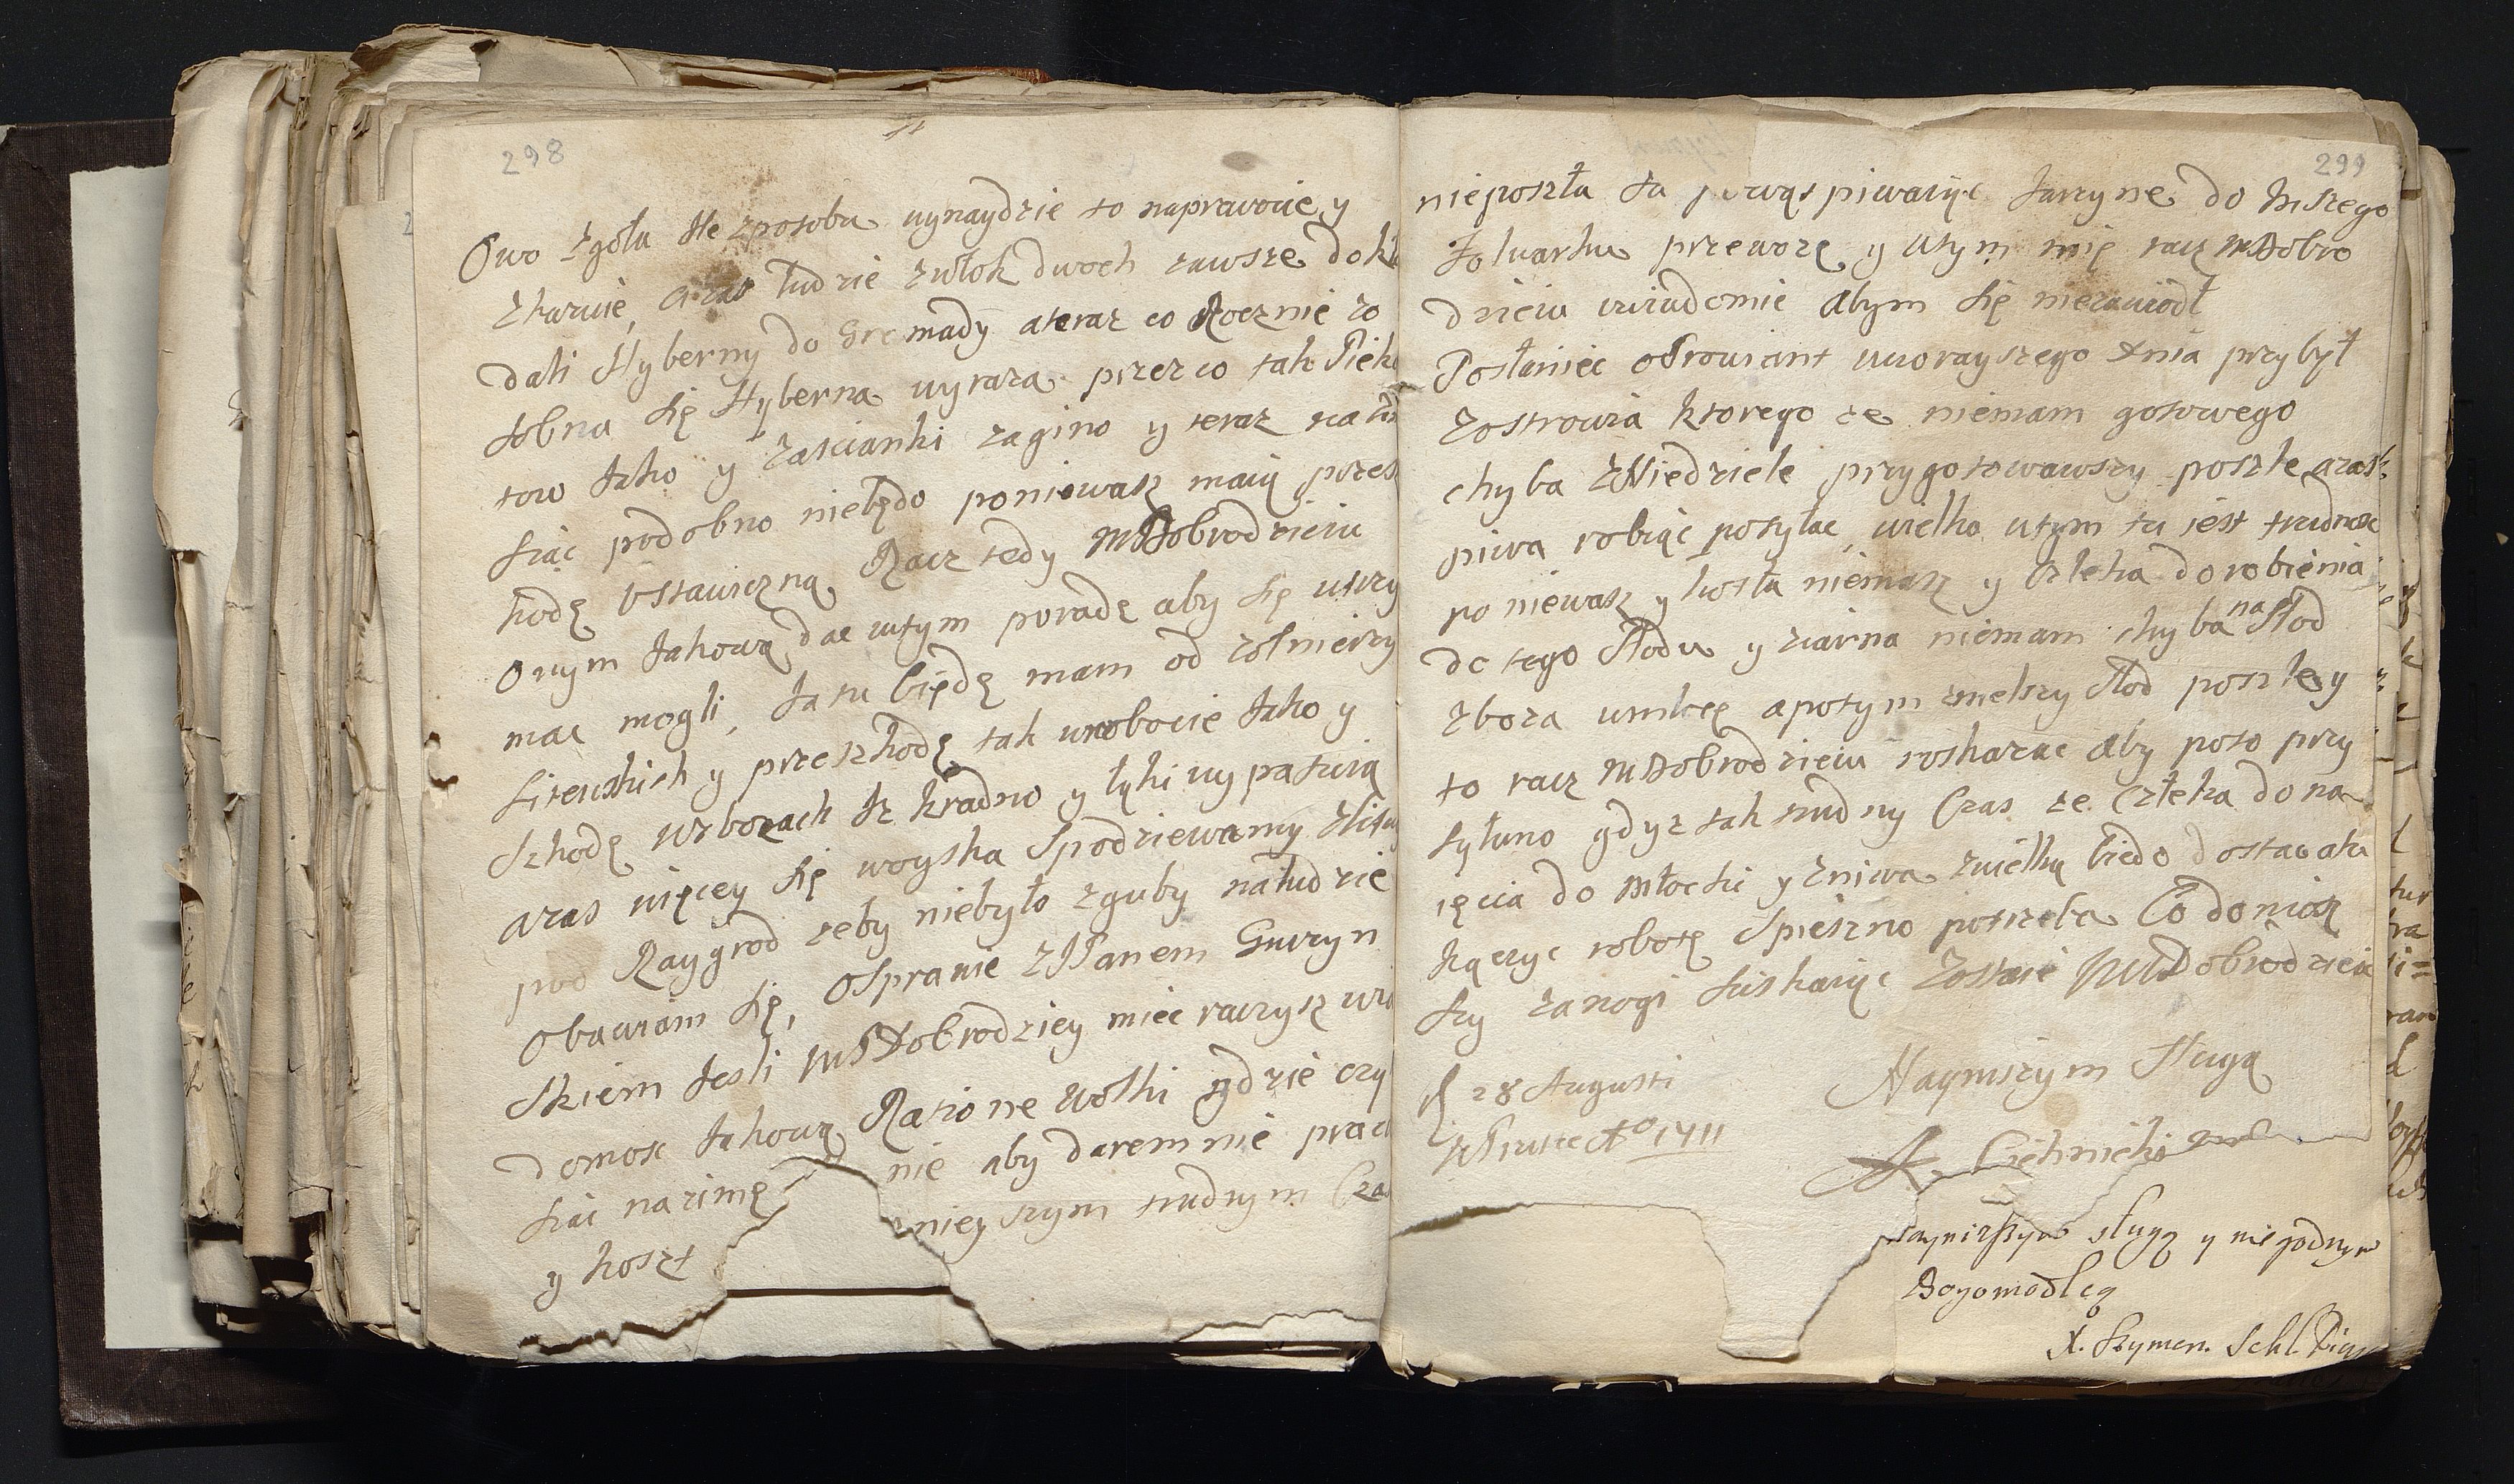 298
Owo zgoła złe zposobu wynaydzie to naprawoie y
zkarcie, araz ludzie zwłok dwoch zawsze dokła
dali Hyberny do Gromady ateraz co Rocznie zo
sobna się Hyberna wyraza przez co tak Pieko
tow Jako y zascianki zagino y teraz
siac podobno niebędo poniewasz maią przesz
kodę Vstawiczną Racz tedy MMDobrodzieiu
onym Jakową dac wtym poradę aby się utrzy
mac mogli, Ja tu biędę mam od zołnierzy
Litewskich y przeszkodę tak wrobocie Jako y
Szkodę wzbozach Iz kradno y łąki wypasuią
aras więcey się woyska Spodziewamy
pod Raygrod zeby niebyło zguby naludzie
Obawiam się, Osprawie zJPanem Guczyn
Skiem Jesli MSDobrodziey miec raczysz wia
domosc Jakową Ratione Wolki gdzie czy
siac nazimę nie aby daremnie prac
y koszt nieyszym trudnym Czas
299
nieposzła Ja powątpiwaiąc Jarzyne do Inszego
Folwarku przewozę y wtym mię racz MSDobro
dzieiu wiadomic Abym się niezawiodł
Posłaniec oProwiant wczorayszego dnia przybył
zostrowia ktorego ze niemam gotowego
chyba zNiedziele przygotowawszy poszle, aras
piwa robiąc posyłac wielka wtym tu iest trudnosc
poniewasz y kotła niemasz y Człeka dorobienia
do tego słodu y ziarna niemam chyba na słod
zboza umłocę apotym zmelszy słod poszle y
to racz MSDobrodzieiu roskazac aby poto przy
syłano gdyz tak trudny Czas ze Człeka do na
ięcia do Młocki y zniwa zwielką biedo dostac ato
kączyc robotę Spieszno potrzeba Co doniosz
szy zanogi sciskaiąc zostaie MMDobrodzieia
Naynizszym Sługą
d 28 Augusti
zPruski Ao 1711
A. Cichnicki
naynizszym sługą y niegodnym
Bogomodlcą
X. Szymon. Schl. Piar